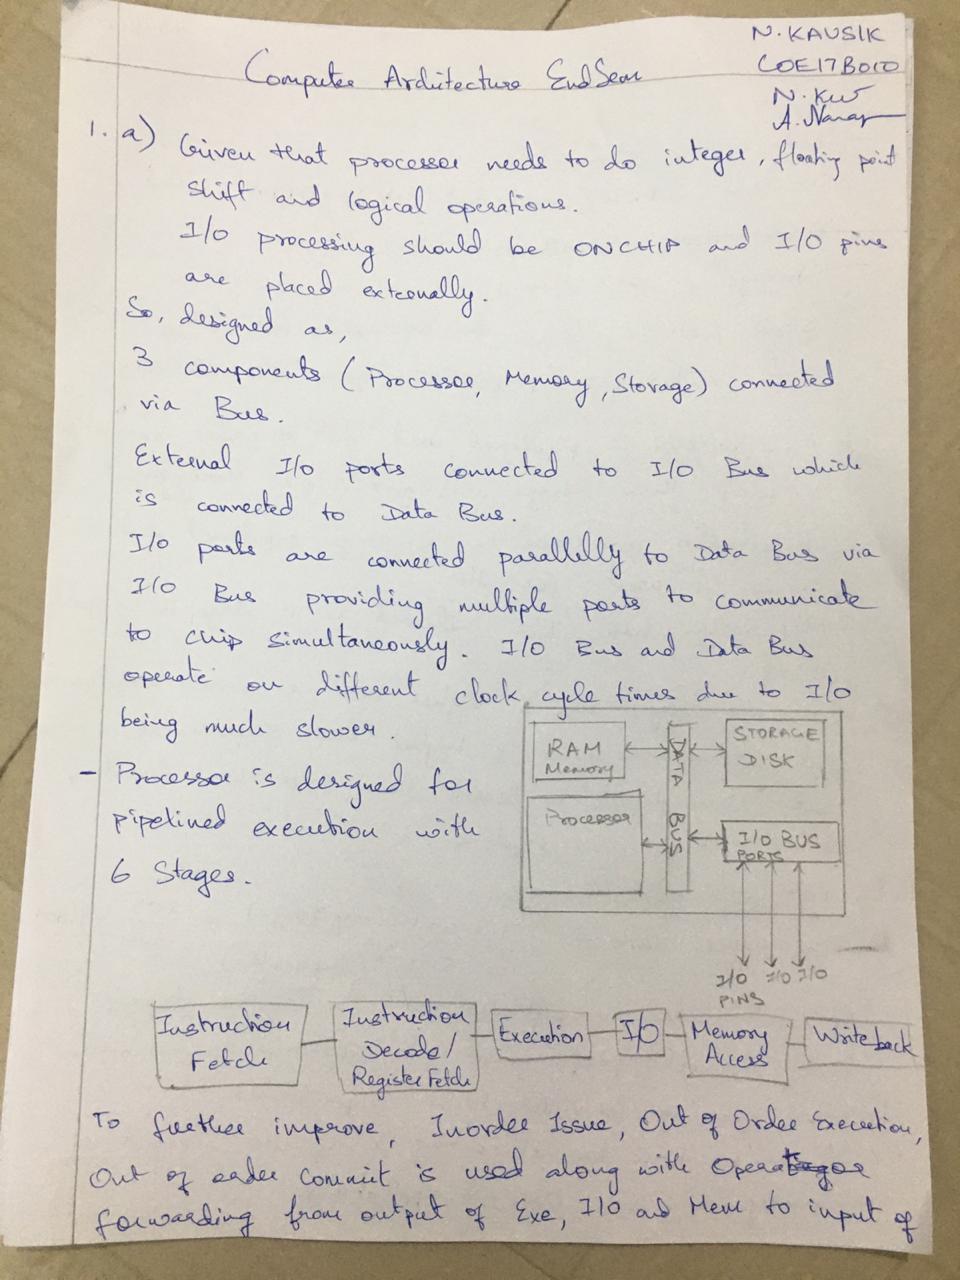 N. KAUSIK
COE17B010
Computer Architecture EndSem
1. a) Given that processor needs to do integer, floating point
shift and logical operations.
I/O processing should be ONCHIP and I/O pins
are placed externally.
So, designed as,
3 components (Processor, Memory, Storage) connected
via Bus.
External I/O ports connected to I/O Bus which
is connected to Data Bus.
I/O ports are connected parallelly to Data Bus via
I/O Bus providing multiple ports to communicate
to chip simultaneously. I/O Bus and Data Bus
operate on different clock cycle times due to I/O
being much slower.
RAM
Memory
DATA BUS
STORAGE
DISK
Processor
I/O BUS
PORTS
I/O I/O I/O
PINS
- Processor is designed for
pipelined execution with
6 Stages.
Instruction
Fetch
Instruction
Decode/
Register Fetch
Execution
I/O
Memory
Access
Write back
To further improve, Inorder Issue, Out of Order Execution,
Out of order Commit is used along with
forwarding from output of Exe, I/O and Mem to input of